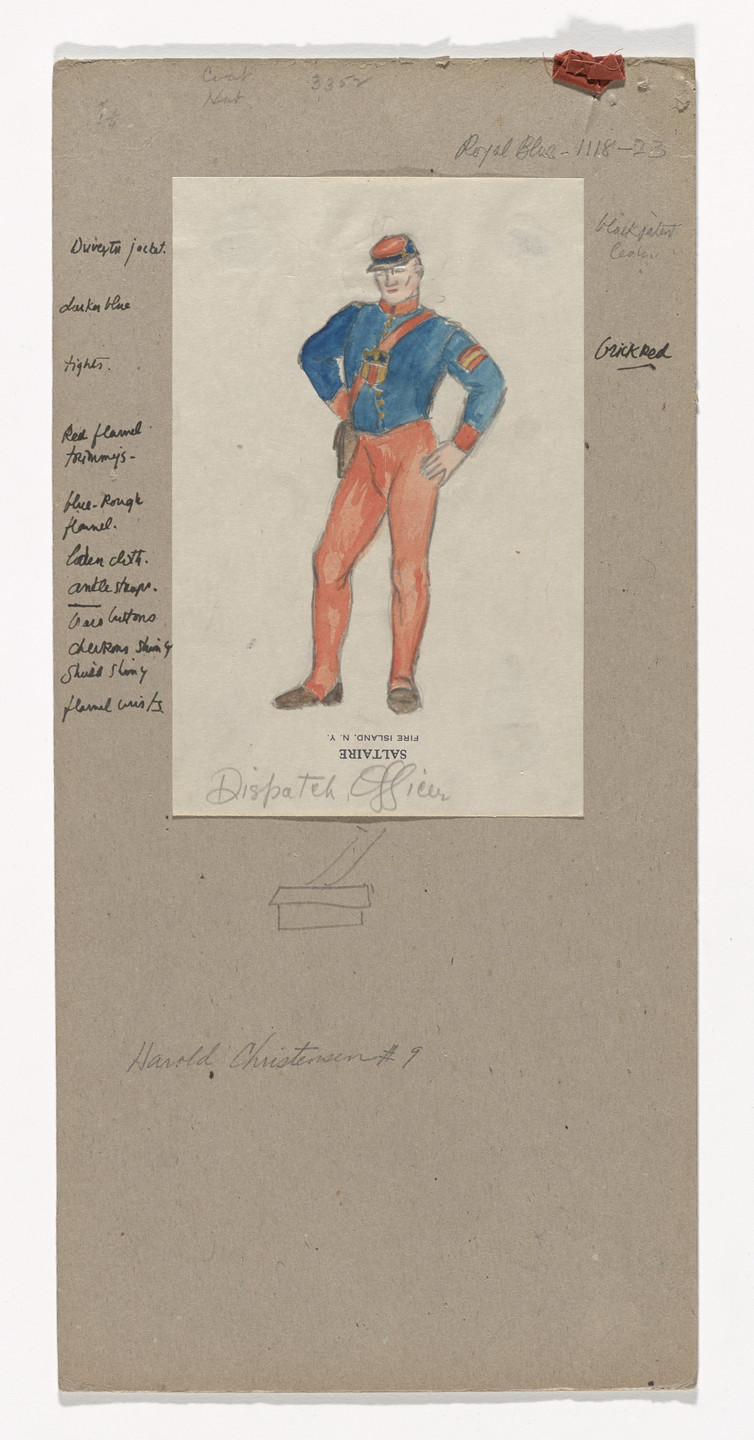 Coat
Hat
3352
Royal Blue - 1118-23
jacket.
darker blue
tights.
Red flannel
trimmings-
blue-Rough
flannel.
cloth.
ankle straps.
buttons
chevrons shiny
shield shiny
flannel wrists
black patent
Brick Red
SALTAIRE
FIRE ISLAND, N. Y.
Dispatch Officer
Harold Christensen #9